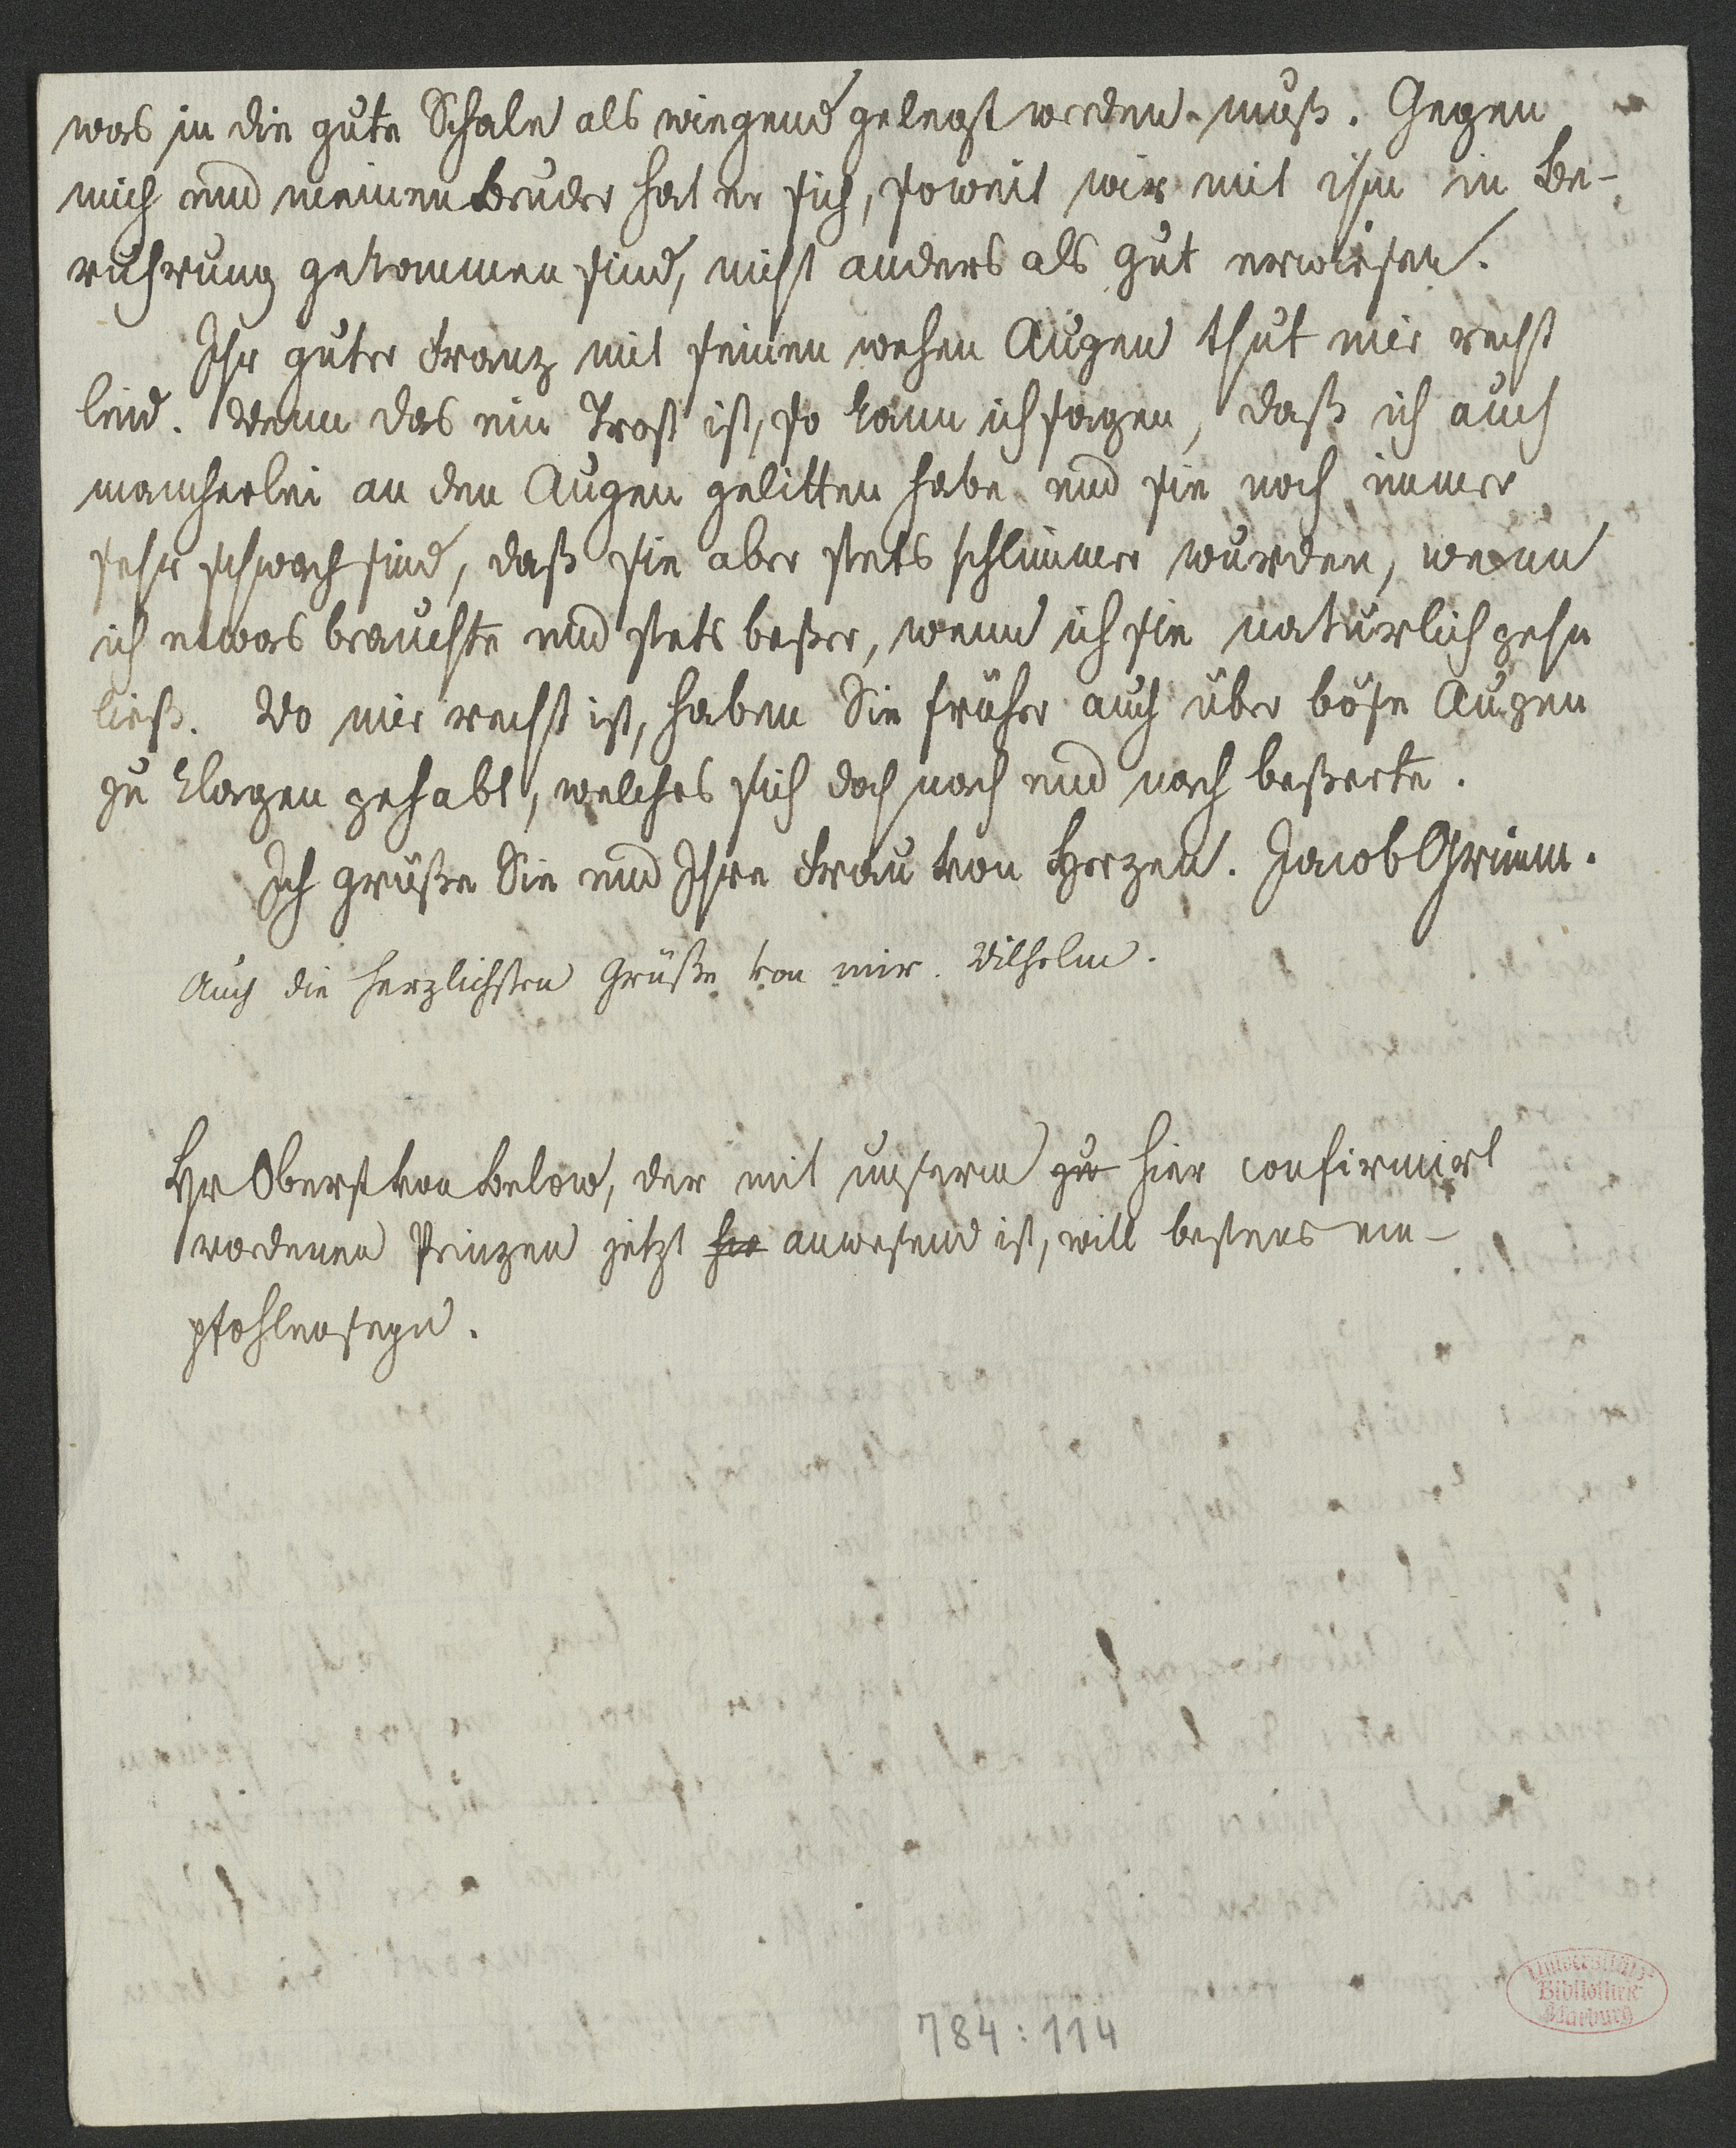 was in die gute Schale als wiegend gelegt werden muß. Gegen
mich und meinen Bruder hat er sich, soweit wir mit ihm in Be-
rührung gekommen sind, nicht anders als gut erwiesen.
Ihr guter Franz mit seinen wehen Augen thut mir recht
leid. Wenn das ein Trost ist, so kann ich sagen, daß ich auch
mancherlei an den Augen gelitten habe und sie noch immer
sehr schwach sind, daß sie aber stets schlimmer wurden, wenn
ich etwas brauchte und stets beßer, wenn ich sie natürlich gehn
ließ. Wo mir recht ist, haben Sie früher auch über böse Augen
zu klagen gehabt, welches sich doch nach und nach beßerte.
Ich grüße Sie und Ihre Frau von Herzen. Jacob Grimm.
Auch die herzlichsten Grüße von mir. Wilhelm.
Hr Oberst von Below, der mit unserm zu hier confirmirt
wordenen Prinzen jetzt hie anwesend ist, will bestens em-
pfohlen seyn.
784:114
Universitäts-
Bibliothek
Marburg